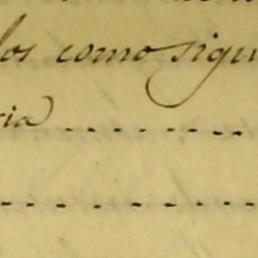 los como sigu
ria